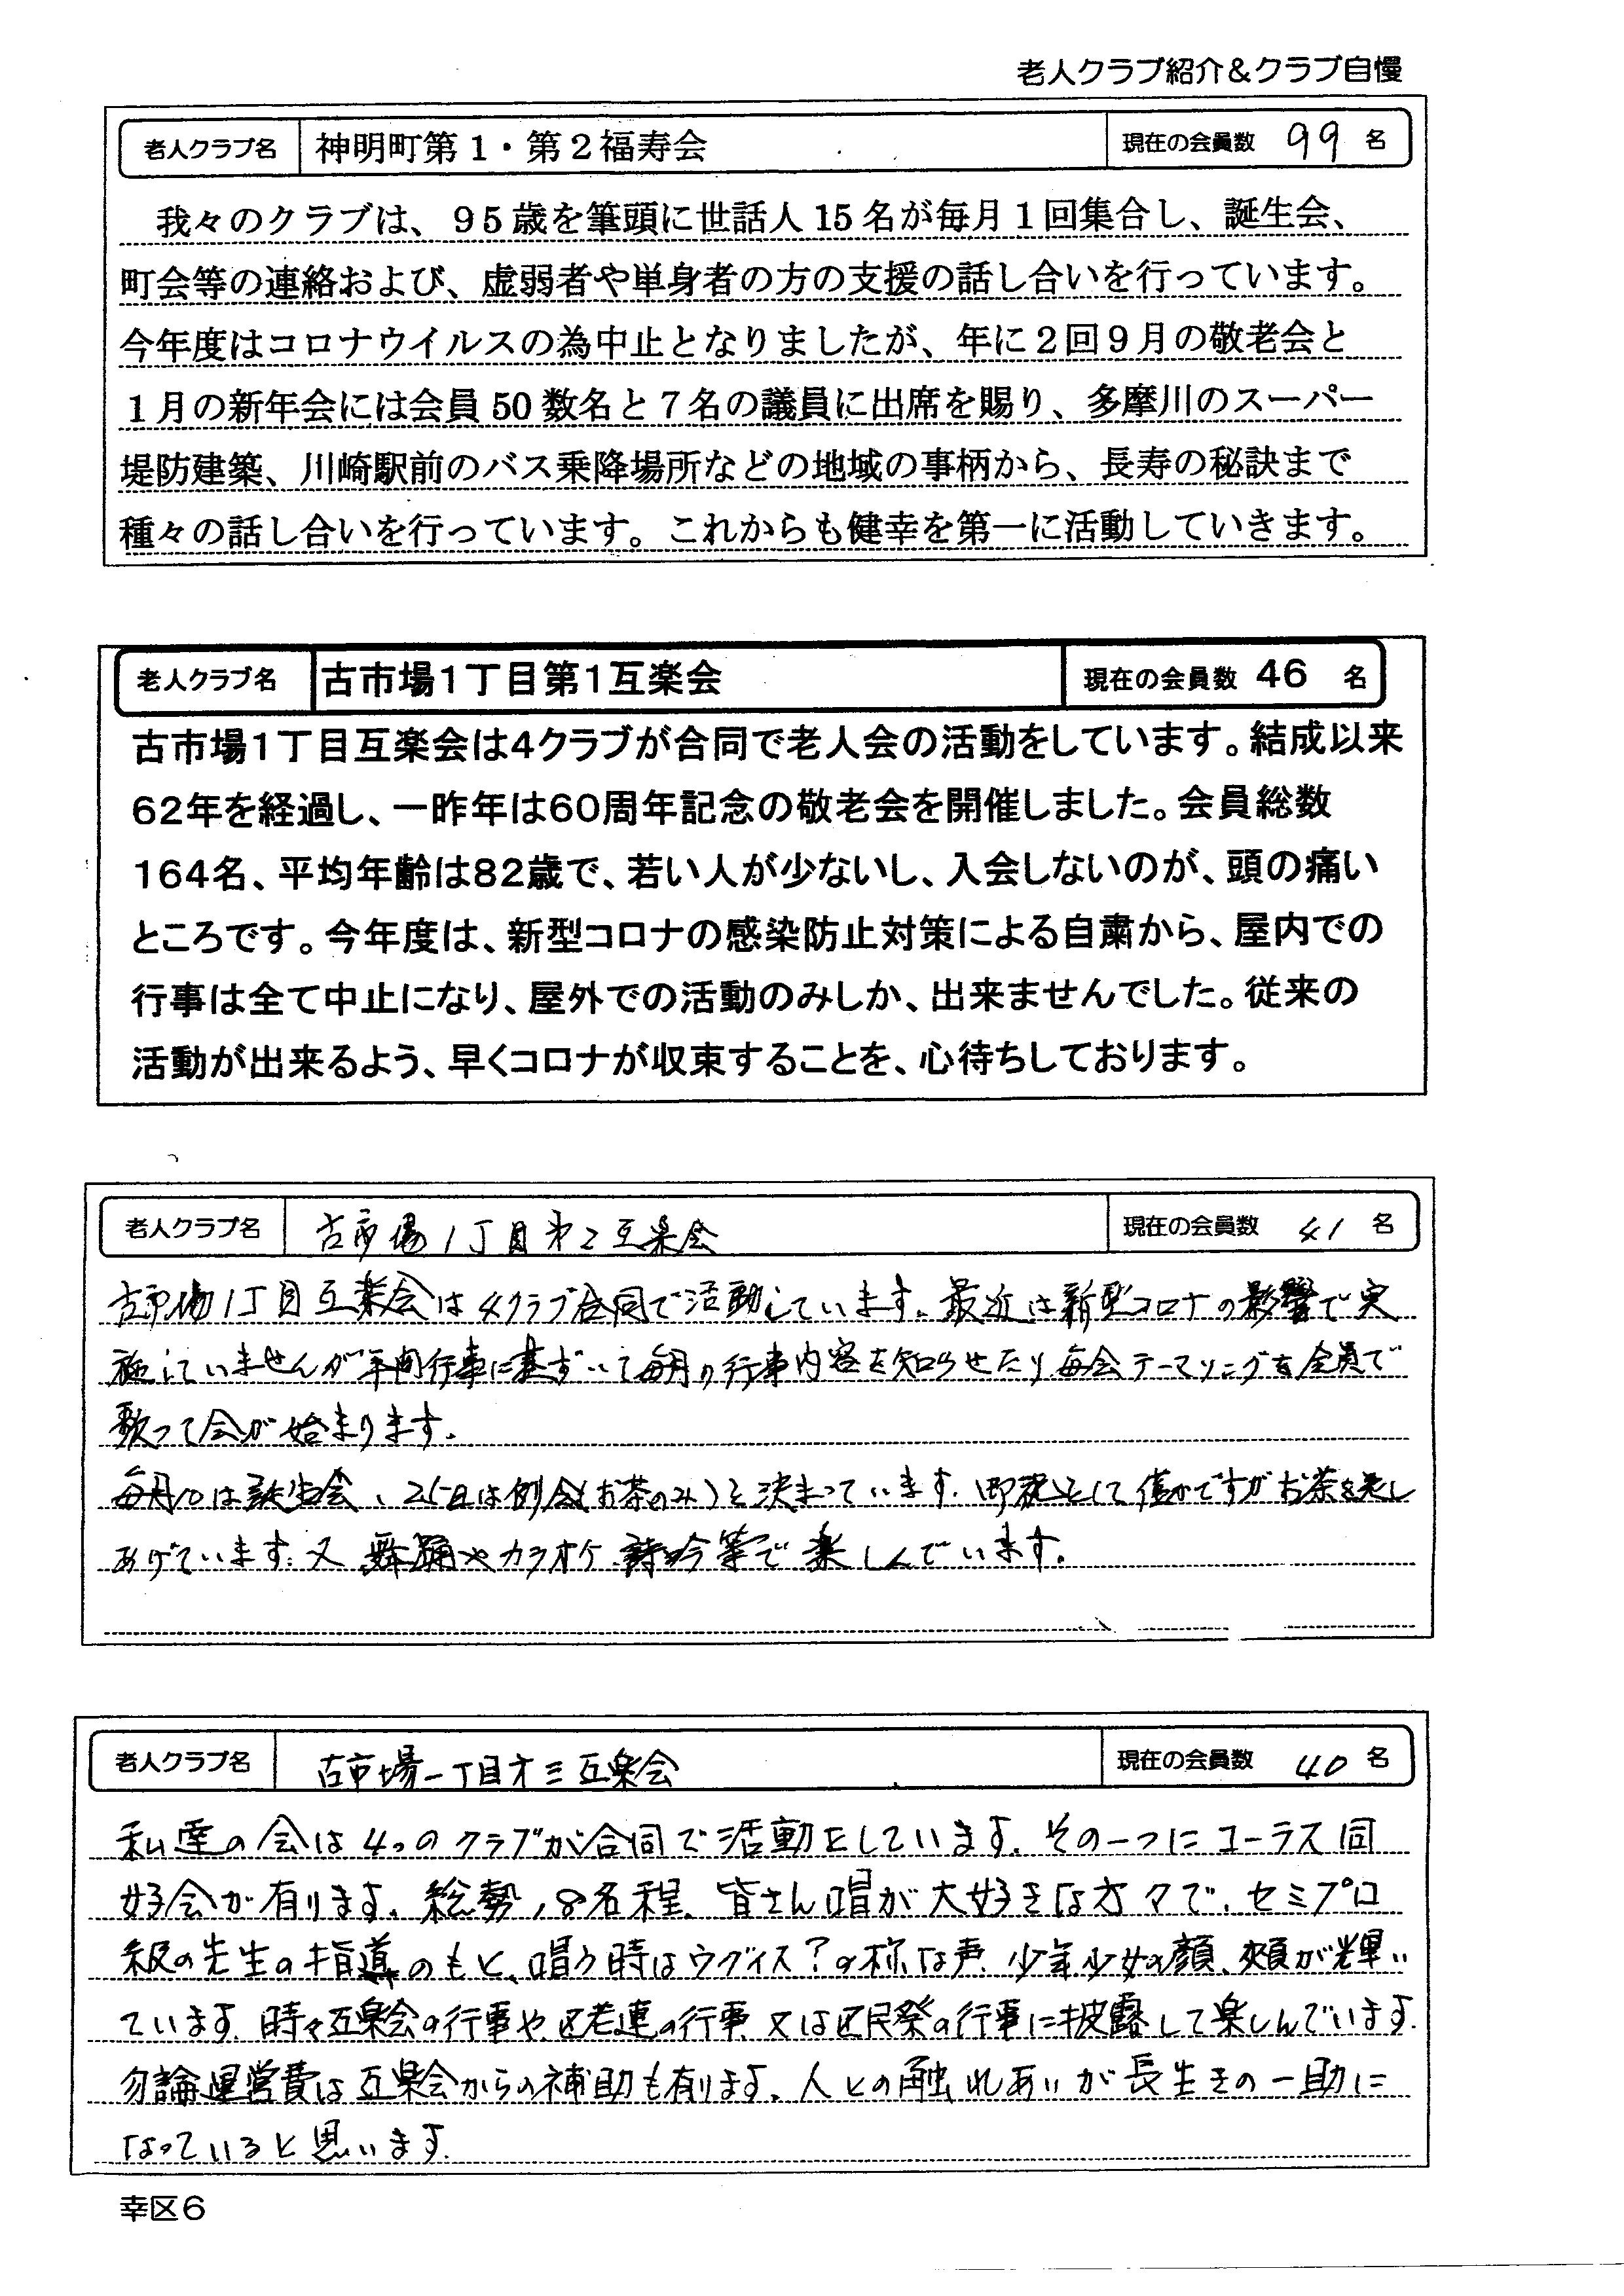 老人クラブ紹介&クラブ自慢
老人クラブ名 神明町第1・第2福寿会 現在の会員数 99 名
我々のクラブは、95歳を筆頭に世話人15名が毎月1回集合し、誕生会、
町会等の連絡および、虚弱者や単身者の方の支援の話し合いを行っています。
今年度はコロナウイルスの為中止となりましたが、年に2回9月の敬老会と
1月の新年会には会員50数名と7名の議員に出席を賜り、多摩川のスーパー
堤防建築、川崎駅前のバス乗降場所などの地域の事柄から、長寿の秘訣まで
種々の話し合いを行っています。これからも健幸を第一に活動していきます。
老人クラブ名 古市場1丁目第1互楽会 現在の会員数 46 名
古市場1丁目互楽会は4クラブが合同で老人会の活動をしています。結成以来
62年を経過し、一昨年は60周年記念の敬老会を開催しました。会員総数
164名、平均年齢は82歳で、若い人が少ないし、入会しないのが、頭の痛い
ところです。今年度は、新型コロナの感染防止対策による自粛から、屋内での
行事は全て中止になり、屋外での活動のみしか、出来ませんでした。従来の
活動が出来るよう、早くコロナが収束することを、心待ちしております。
老人クラブ名 古市場1丁目才2互楽会 現在の会員数 41 名
古市場1丁目互楽会は4クラブ合同で活動しています。最近は新型コロナの影響で実
施していませんが年間行事に基ずいて毎月の行事内容を知らせたり毎会テーマソングを全員で
歌って会が始まります。
毎月10は誕生会、25日は例会(お茶のみ)と決まっています。即祝として僅かですがお茶を差し
あげています。又 舞踊やカラオケ 詩吟等で楽しんでいます。
老人クラブ名 古市場一丁目才三互楽会 現在の会員数 40 名
私達の会は4つのクラブが合同で活動をしています。その一つにコーラス同
好会が有ります。総勢18名程、皆さん唱が大好きな方々で、セミプロ
級の先生の指導のもと、唱う時はウグイス?の様な声、少年少女の顔、頬が輝い
ています。時々互楽会の行事や区老連の行事、又は区民祭の行事に披露して楽しんでいます。
勿論運営費は互楽会からの補助も有ります。人との触れあいが長生きの一助に
なっていると思います。
幸区6